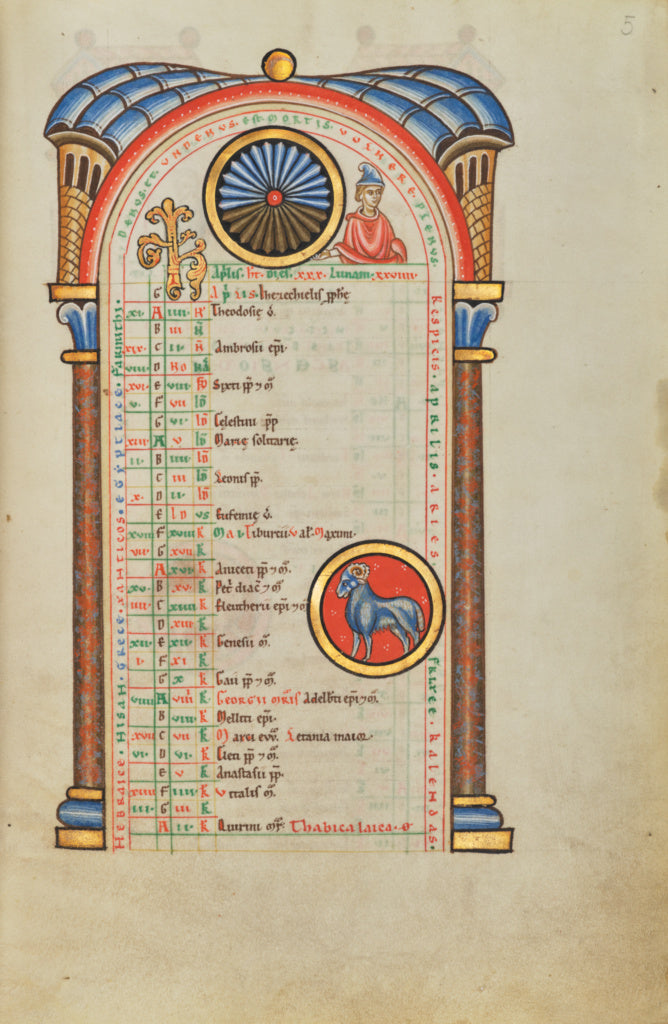 5
DENUS. ET. UNDENUS. EST MORTIS. VULNERE. PLENUS.
KL Aplis. ht. dies. xxx. Lunam. xxviiii.
G Ap̃lis. Iherechielis ꝓphe
xi. A iiii. N̄ Theodosie ṽ.
B iii N̄
xix. C ii. N̄ Ambrosii ep̄i.
viii. D NO NĀ
xvi. E viii ID̄ Sixti p̄p ⁊ m̄.
v. F vii ID̄
G vi. ID̄ Celestini p̄p
xiii A v ID̄ Marie solitarie.
ii. B iiii. ID̄
C iii ID̄ Leonis p̄p.
x. D ii. ID̄
E ID us Eufemie ṽ.
xviii F xviii K Mai. Tiburcii ⁊ val. Maximi.
vii. G xvii. K
A xvi. K Aniceti p̄p ⁊ m̄.
xv. B xv. K Pet̄ diac̄ ⁊ m̄.
iiii. C xiiii K Eleutherii ep̄i ⁊ m̄
D xiii. K
xii. E xii. K Genesii m̄.
i. F xi K
G x K Gaii p̄p ⁊ m̄.
viiii A viiii K Georgii m̄ris Adelb̄ti ep̄i ⁊ m̄.
B viii. K Melliti ep̄i.
xvii C vii K Marci ew̄. Letania maior.
vi. D vi. K Cleti p̄p ⁊ m̄.
E v K Anastasii p̄p.
xiiii F iiii K Vitalis m̄.
iii. G iii K
A ii. K Quirini m̄r.
HEBRAICE. NISAN. GRECE. XANTICOS. EGYPTIACE. FARMITHI.
RESPICIS. APRILIS. ARIES. FRIXEE. KALENDAS.